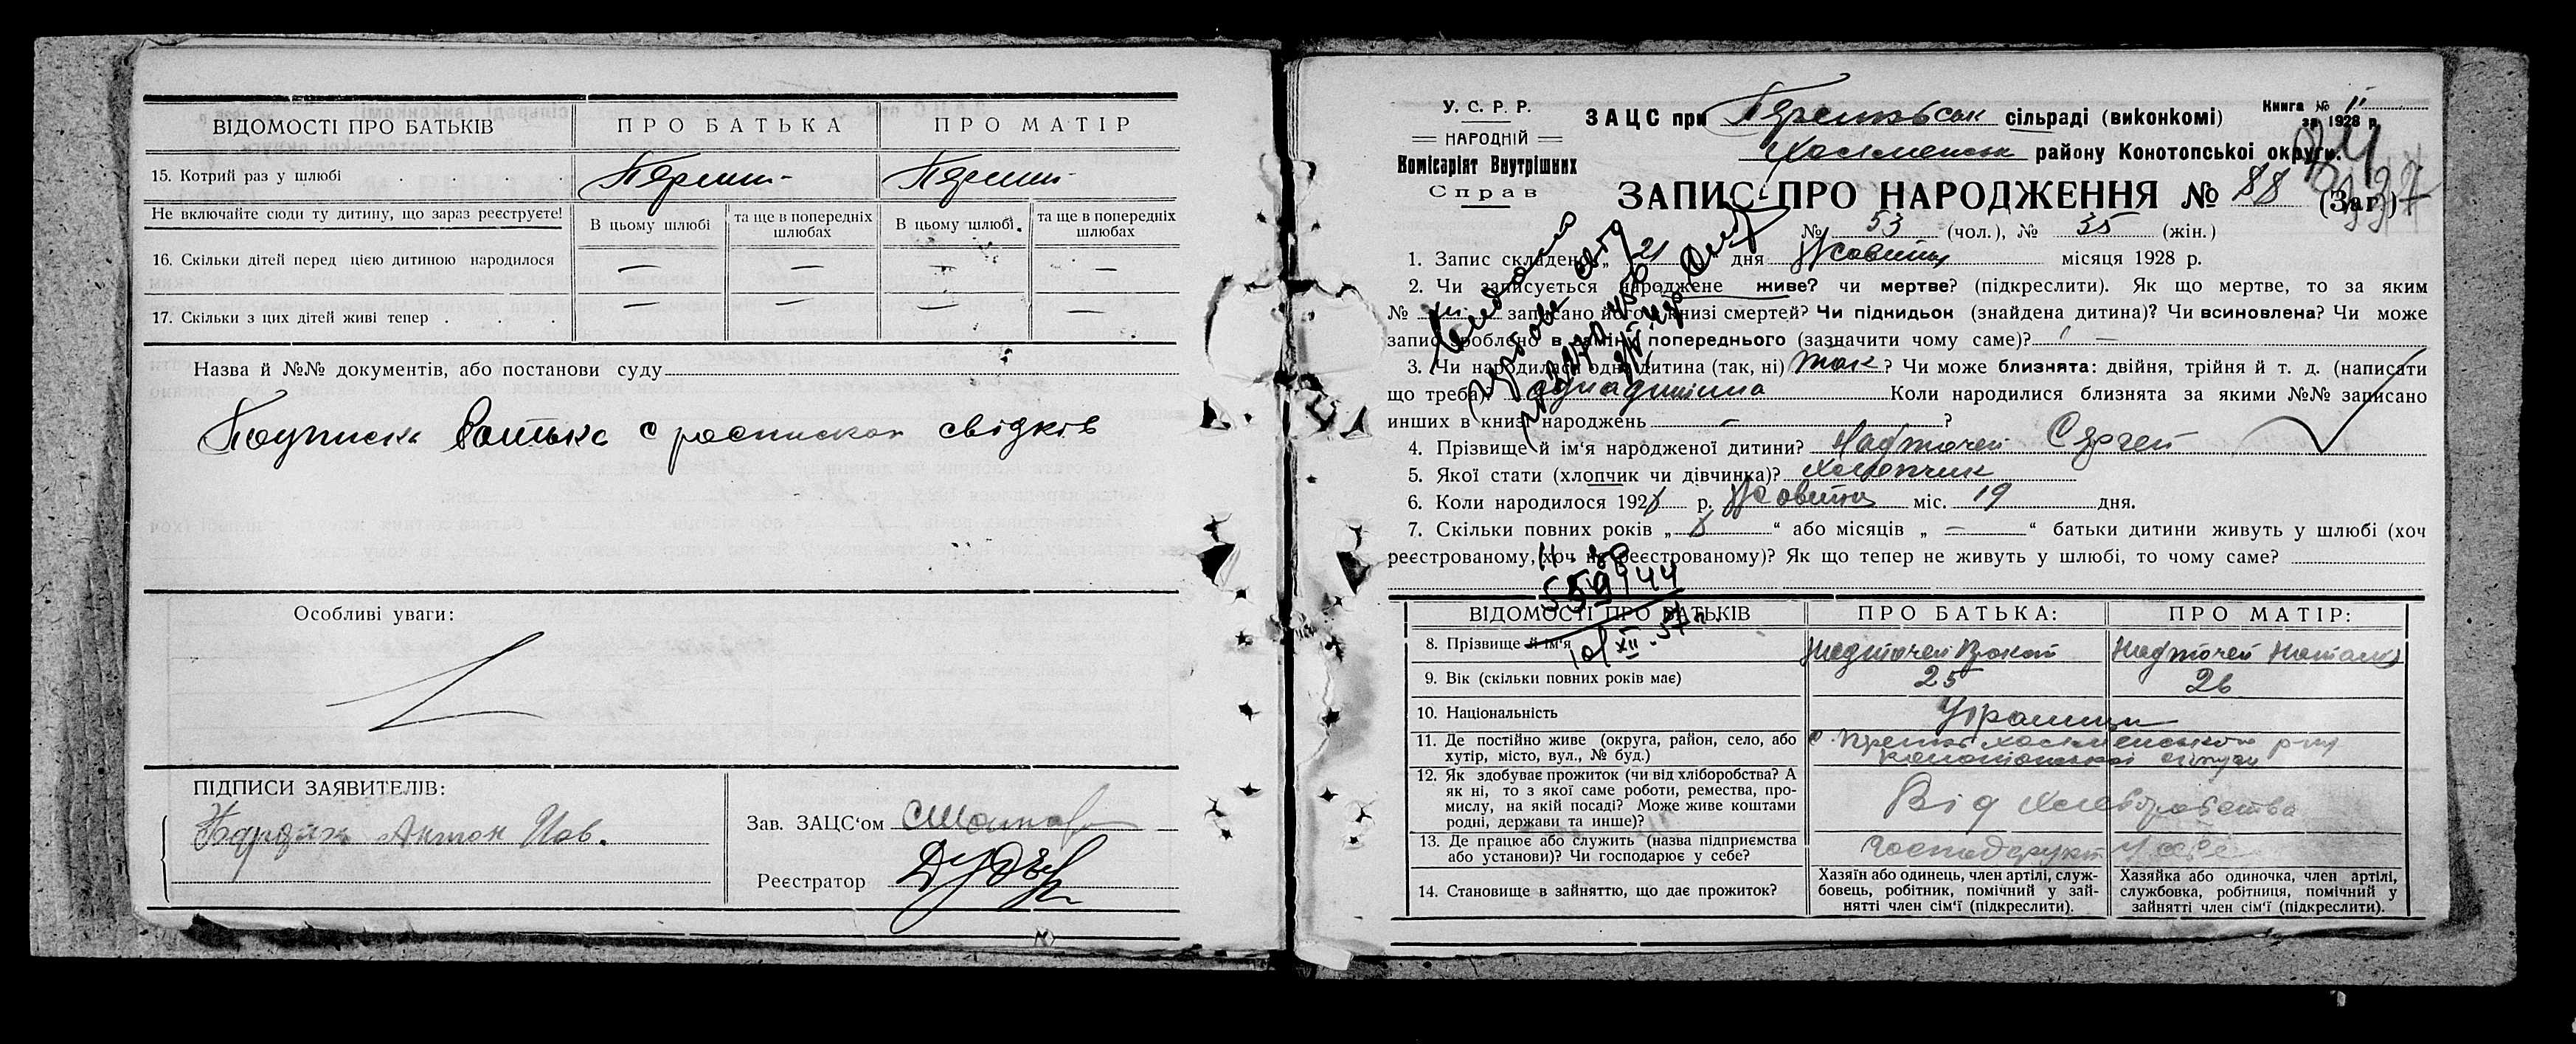 ВІДОМОСТІ ПРО БАТЬКІВ ПРО БАТЬКА ПРО МАТІР
15. Котрий раз у шлюбі
Не включайте сюди ту дитину, що зараз реєструєте! В цьому шлюбі та ще в попередніх шлюбах В цьому шлюбі та ще в попередніх шлюбах
16. Скільки дітей перед цією дитиною народилося — — — —
17. Скільки з цих дітей живі тепер — — — —
Назва й №№ документів, або постанови суду
батька с роспискою свідків
Особливі уваги:
ПІДПИСИ ЗАЯВИТЕЛІВ:
Антон
Зав. ЗАЦС'ом
Реєстратор
У. С. Р. Р.
НАРОДНІЙ
Комісаріят Внутрішних
Справ
Книга № 11
за 1928 р.
ЗАЦС при сільраді (виконкомі)
району Конотопської округи.
ЗАПИС ПРО НАРОДЖЕННЯ № 88 (Заг.)
№ 53 (чол.), № 35 (жін.)
1. Запис складено „ 21 дня Жовтня місяця 1928 р.
2. Чи записується народжене живе? чи мертве? (підкреслити). Як що мертве, то за яким
№ записано його в книзі смертей? Чи піднидьок (знайдена дитина)? Чи всиновлена? Чи може
запис зроблено в заміну попереднього (зазначити чому саме)? —
3. Чи народилася одна дитина (так, ні) так ? Чи може близнята: двійня, трійня й т. д. (написати
що треба) Коли народилися близнята за якими №№ записано
инших в книзі народжень — ?
4. Прізвище й ім'я народженої дитини? Надточей Сергей
5. Якої стати (хлопчик чи дівчинка)? Хлопчик
6. Коли народилося 1928 р. Жовтня міс. 19 дня.
7. Скільки повних років „ “ або місяців „ — “ батьки дитини живуть у шлюбі (хоч
реєстрованому, хоч не реєстрованому)? Як що тепер не живуть у шлюбі, то чому саме?
ВІДОМОСТІ ПРО БАТЬКІВ ПРО БАТЬКА: ПРО МАТІР:
8. Прізвище й ім'я Надточей Надточей
9. Вік (скільки повних років має) 25 26
10. Національність
11. Де постійно живе (округа, район, село, або
хутір, місто, вул., № буд.)
12. Як здобуває прожиток (чи від хліборобства? А
як ні, то з якої саме роботи, ремества, про-
мислу, на якій посаді? Може живе коштами
родні, держави та инше)?
Від Хліборобства
13. Де працює або служить (назва підприємства
або установи)? Чи господарює у себе?
у себе
14. Становище в зайняттю, що дає прожиток?
Хазяїн або одинець, член артілі, служ-
бовець, робітник, помічний у зай-
нятті член сім'ї (підкреслити).
Хазяйка або одиночка, член артілі,
службовка, робітниця, помічний у
зайнятті член сім'ї (підкреслити).